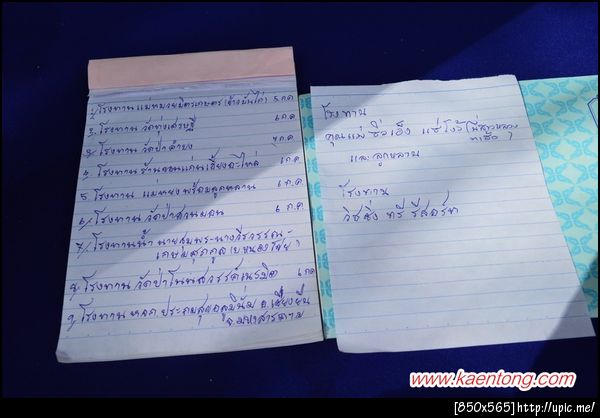 1/ โรงทาน แม่หมวยมิตรเกษตร (ข้าวมันไก่) 5 ก.ค.
2. โรงทาน วัดทุ่งเศรษฐี ๖ ก.ค.
3/ โรงทาน วัดป่า
4. โรงทาน ร้านขอนแก่นเลี้ยงอะไหล่ ๖ ก.ค.
5. โรงทาน แม่ทยง พร้อมลูกหลาน ๖ ก.ค.
6/ โรงทาน วัดป่าสวนมอน ๖ ก.ค.
7/ โรงทานน้ำ นายสมพร-นางวีรวรรณ
8. โรงทาน วัดป่าโนนสวรรค์เนรมิต ๖ ก.ค.
9. โรงทาน หจก. ประถมสุขอลูมินั่ม อ.เชียงยืน
จ.มหาสารคาม
โรงทาน
คุณแม่ ซิวเอ็ง แซ่โง้ว
และ ลูกหลาน
โรงทาน
วิชชิ่ง ทรี รีสอร์ท
www.kaentong.com
[850x565]http://upic.me/